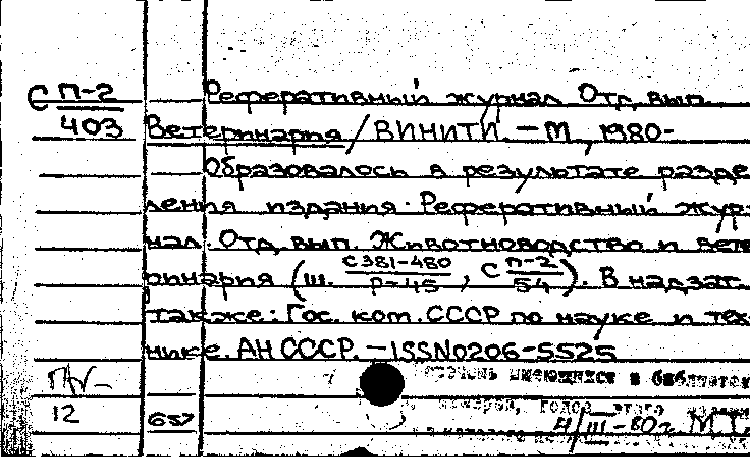 С П-2 Реферативный журнал Отд. вып.
403 Ветеринария / ВИНИТИ. — М., 1980-
Образовалось в результате разде
ления издания: Реферативный жур-
нал. Отд. вып. Животноводство и вете
ринария (ш. С381-480 / Р-45, С П-2 / 54). В надзаг.
также: Гос. ком. СССР по науке и тех
нике. АН СССР. — ISSN0206-5525
имеющихся в библиотек
12 657 номеров, этого
4/III-80г. М